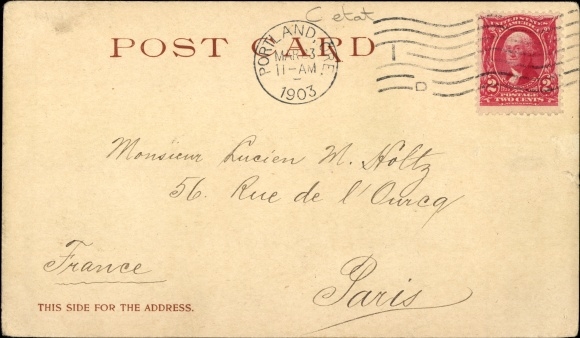 C etat
POST CARD
PORTLAND, ORE.
MAR 3
11-AM
1903
1
D
UNITED STATES OF AMERICA
2 2
POSTAGE
TWO CENTS
Monsieur Lucien M. Holtz
56. Rue de l'Ourcq
France
Paris
THIS SIDE FOR THE ADDRESS.